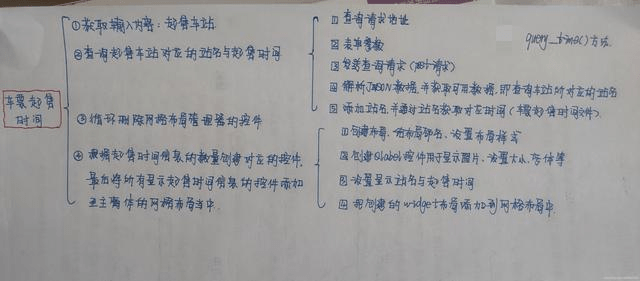 车票起售
时间
①获取输入内容：起售车站
②查询起售车站对应的站名与起售时间
③循环删除网格布局管理器的控件
④根据起售时间信息的数量创建对应的控件,
最后将所有显示起售时间信息的控件添加
至主窗体的网格布局当中.
query_time()方法.
1 查询请求地址
2 表单参数
3 发送查询请求（post请求）
4 解析JSON数据,并获取可用数据,即查询车站所对应的站名
5 添加站名,并通过站名获取对应时间（车票起售时间文件）.
1 创建布局、给布局命名、设置布局样式
2 创建Qlabel控件用于显示图片、设置大小、字体等
3 设置显示站名与起售时间
4 把创建的widget布局添加到网格布局中.